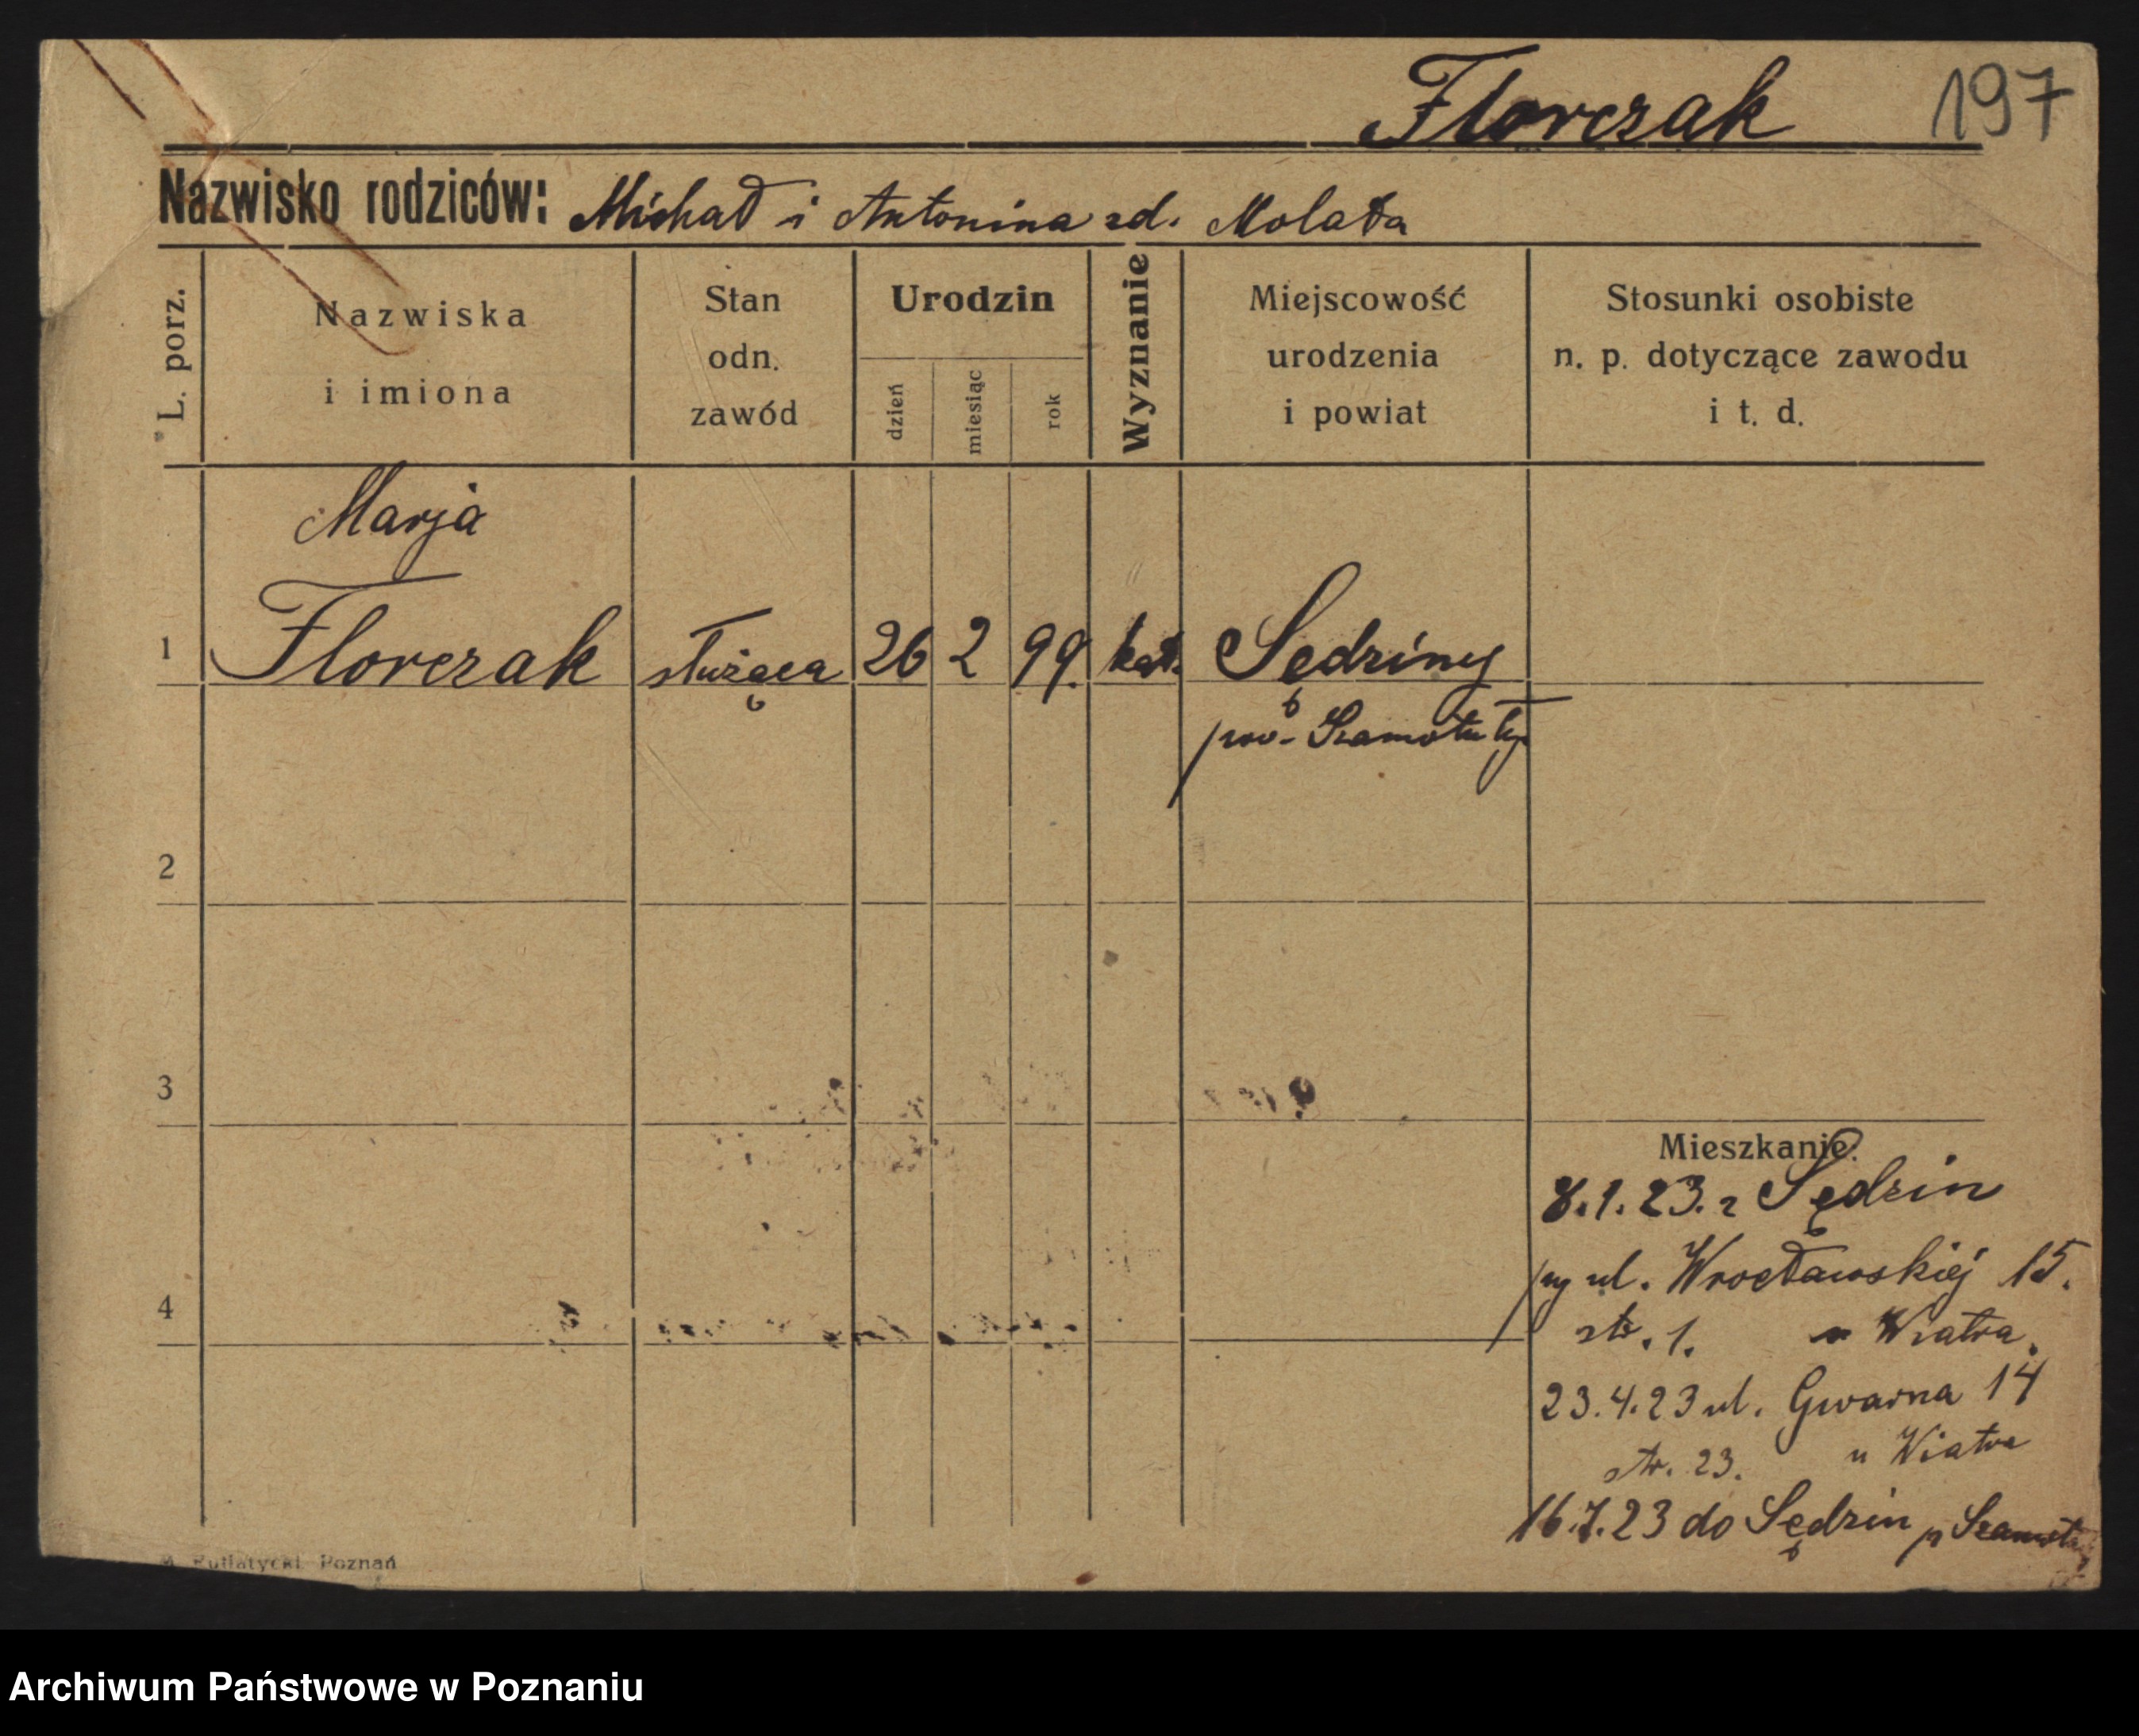 Florczak 197
Nazwisko rodziców: Michał i Antonina zd. Molata
L. porz.
Nazwiska
i imiona
Stan
odn.
zawód
Urodzin
dzień
miesiąc
rok
Wyznanie
Miejscowość
urodzenia
i powiat
Stosunki osobiste
n. p. dotyczące zawodu
i t. d.
Marja
1 Florczak służąca 26 2 99. kat. Sędziny
pow. Szamotuły
2
3
4
Mieszkanie.
8.1.23. z Sędzin
ul. Wrocławskiej 15.
str. 1. u Wiatra.
23.4.23 ul. Gwarna 14
str. 23. u Wiatra
16.7.23 do Sędzin p Szamotuły
Putiatycki Poznań
Archiwum Państwowe w Poznaniu